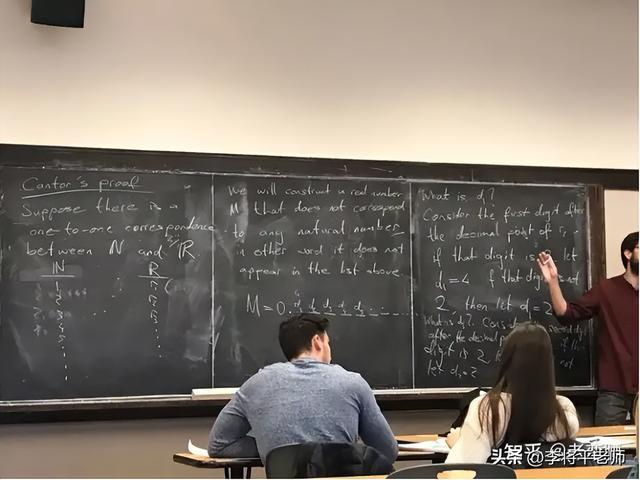 Cantor's proof
Suppose there is a
one-to-one correspondence
between N and R.
N R
1 r₁
2 r₂
3 r₃
4
5
We will construct a real number
M that does not correspond
to any natural number
in other word it does not
appear in the list above.
M = 0.d₁ d₂ d₃ d₄
What is d₁?
Consider the first digit after
the decimal point of r₁
if that digit is let
d₁ = 4 if that digit is not
2, then let d₁ = 2
What is d₂? second
after the decimal
digit is 2
let d₂ = 2
知乎
头条 @李将平老师